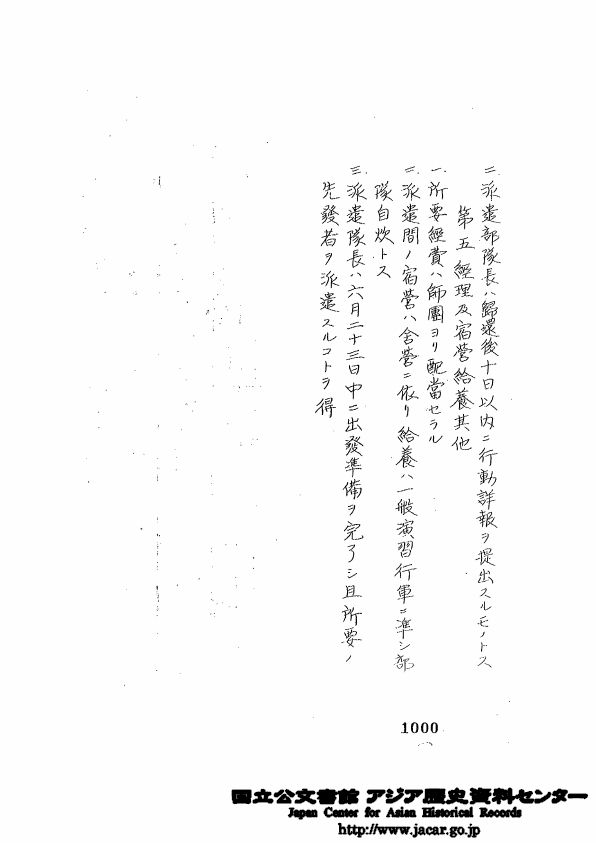 二、派遣部隊長ハ歸還後十日以内ニ行動詳報ヲ提出スルモノトス
第五 經理及宿營給養其他
一、所要經費ハ師團ヨリ配當セラル
二、派遣間ノ宿營ハ舍營ニ依リ給養ハ一般演習行軍ニ準シ部
隊自炊トス
三、派遣隊長ハ六月二十三日中ニ出發準備ヲ完了シ且所要ノ
先發者ヲ派遣スルコトヲ得
1000
国立公文書館 アジア歴史資料センター
Japan Center for Asian Historical Records
http://www.jacar.go.jp